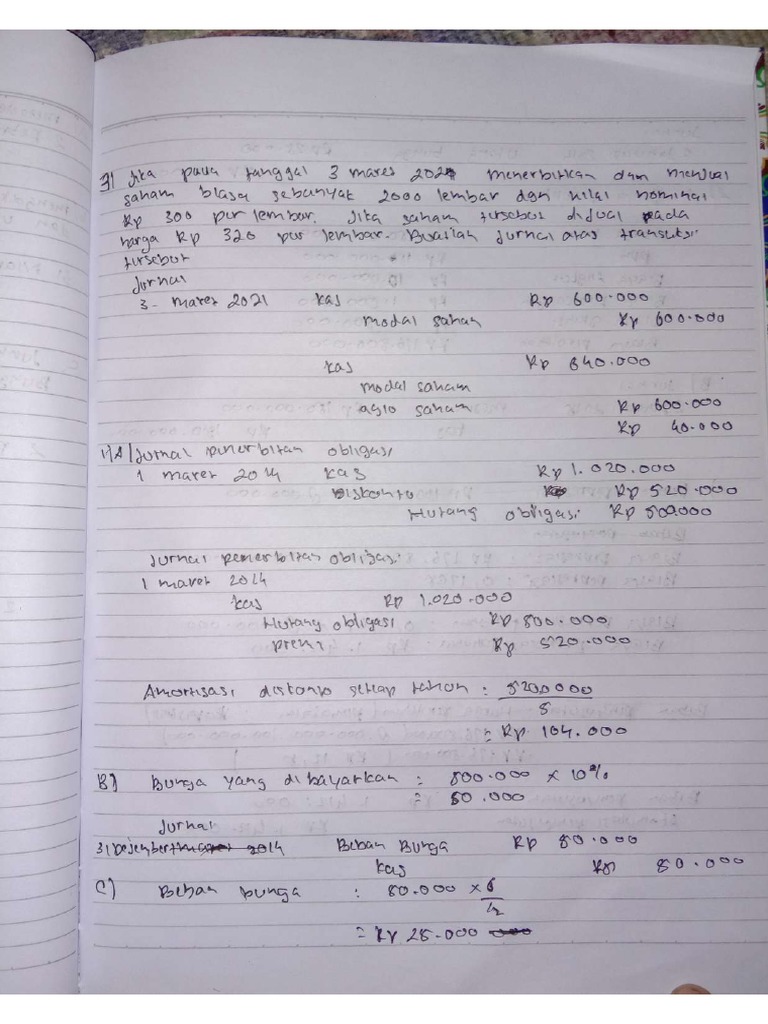 3) Jika pada tanggal 3 maret 2021 menerbitkan dan menjual
saham biasa sebanyak 2000 lembar dgn nilai nominal
Rp 300 per lembar. Jika saham tersebut dijual pada
harga Rp 320 per lembar. Buatlah jurnal atas transaksi
tersebut
Jurnal
3 - maret 2021 kas Rp 600.000
modal saham Rp 600.000
kas Rp 640.000
modal saham
agio saham Rp 600.000
Rp 40.000
1) A) Jurnal penerbitan obligasi
1 maret 2014 kas Rp 1.020.000
Diskonto Rp 520.000
Hutang obligasi Rp 500.000
Jurnal penerbitan obligasi:
1 maret 2014
kas Rp 1.020.000
Hutang obligasi Rp 500.000
premi Rp 520.000
Amortisasi diskonto setiap tahun : 520.000
5
= Rp 104.000
B) Bunga yang dibayarkan : 500.000 x 10%
= 50.000
Jurnal
31 Desember 2014 Beban Bunga Rp 50.000
kas Rp 50.000
C) Beban bunga : 50.000 x 6
12
= Rp 25.000